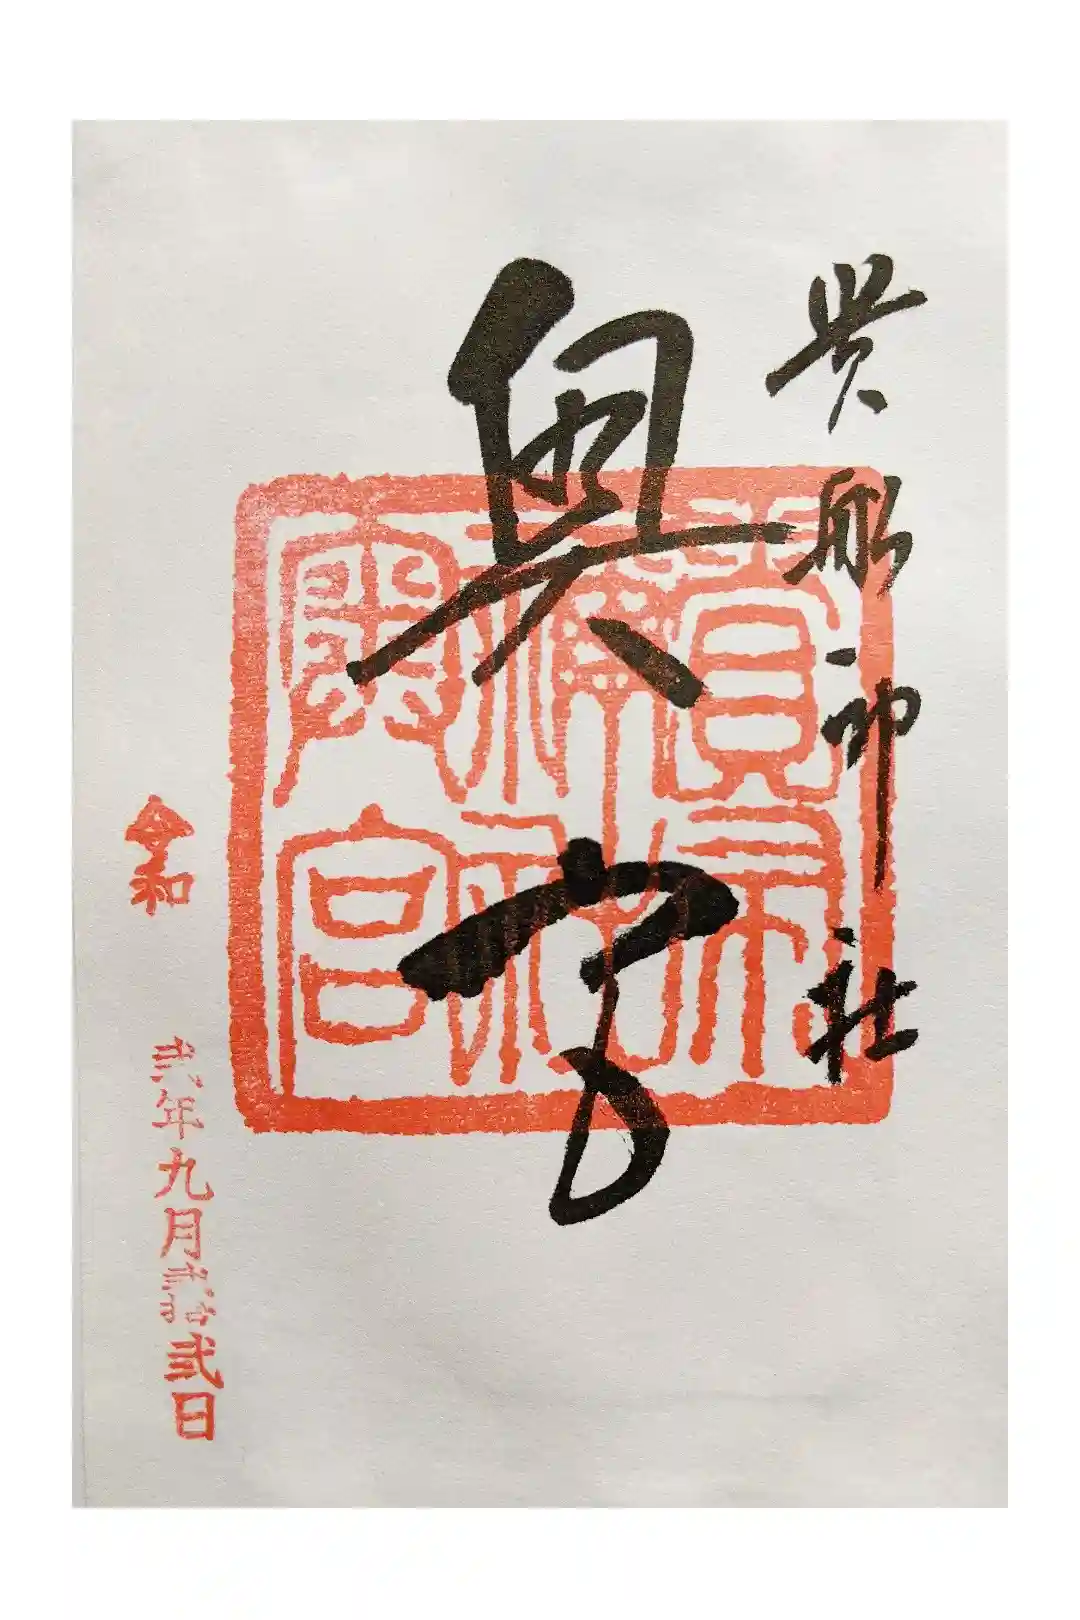 貴船神社
奥宮
貴布
禰神社
奥宮
令和
弐年九月弐拾弐日